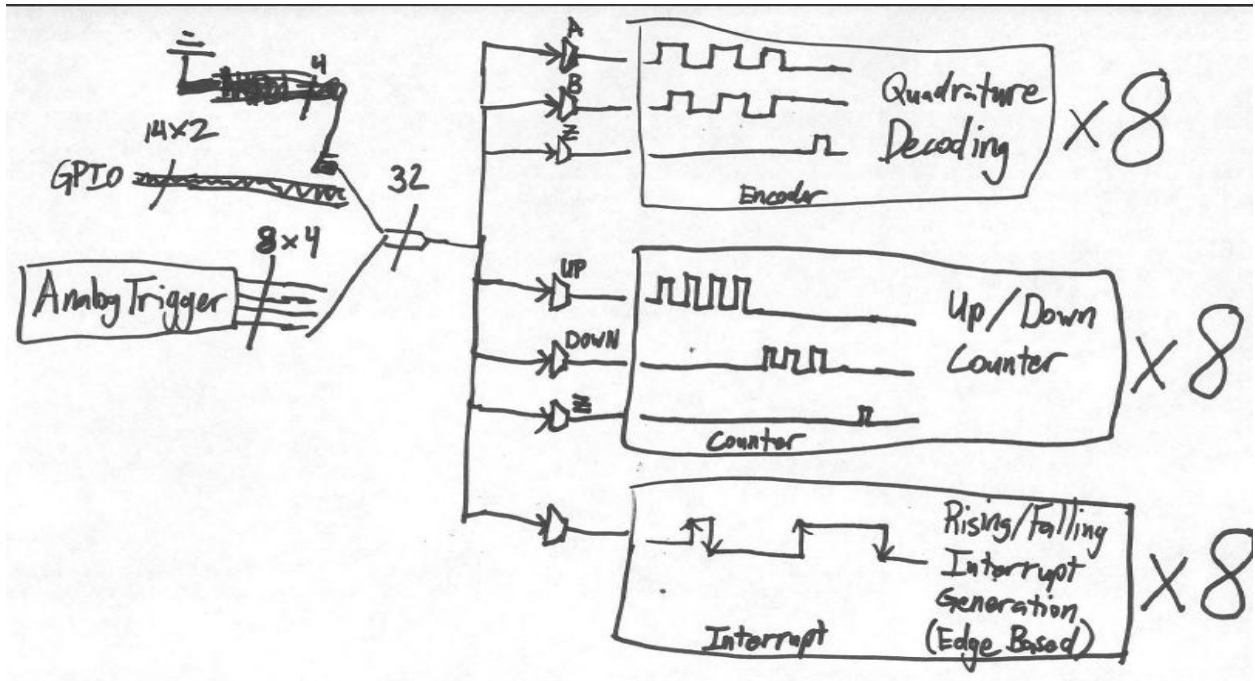 4
14×2
GPIO
8×4
Analog Trigger
32
A
B
Z
Quadrature
Decoding
Encoder
×8
UP
DOWN
Z
Up/Down
Counter
Counter
×8
Rising/Falling
Interrupt
Generation
(Edge Based)
Interrupt
×8